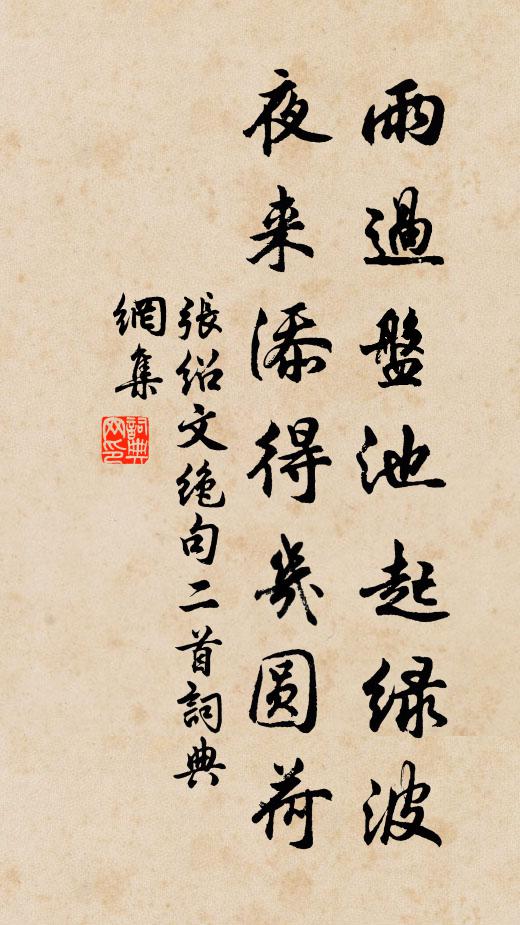 雨過盤池起緑波
夜来添得幾圓荷
張紹文絶句二首詞典
網集
詞典網印